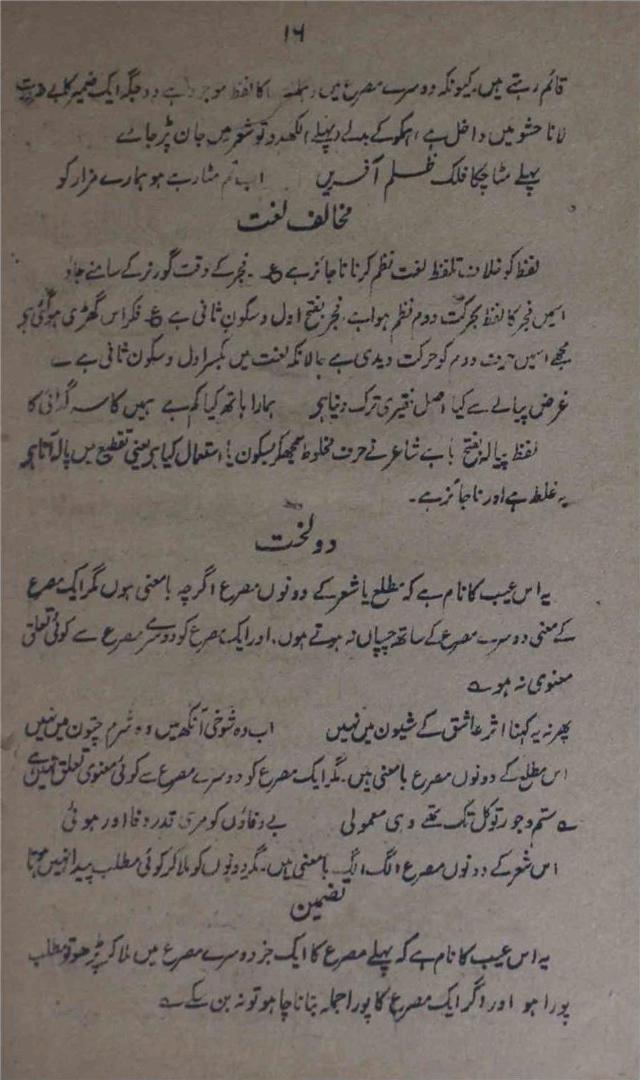 ۱۶
قائم رہتے ہیں۔ کیونکہ دوسرے مصرع میں کا لفظ موجود ہے دوجگہ ایک ضمیر کا بے ضرورت
لانا حشو میں داخل ہے، اسکو کے بدلے (پہلے) لکھدو تو شعر میں جان پڑ جائے
پہلے مٹا چکا فلک ظلم آفریں اب تم مٹا رہے ہو ہمارے مزار کو
مخالف لغت
لفظ کو خلاف تلفظ لغت نظم کرنا ناجائز ہے ع۔ فجر کے وقت گورنر کے سامنے جاؤ
اسمیں فجر کا لفظ بحرکت دوم نظم ہوا ہے، فجر بفتح اول و سکون ثانی ہے ع فکر اس گھڑی ہوگئی ہو
مجھے اسمیں حرف دوم کو حرکت دیدی ہے حالانکہ لغت میں بکسر اول و سکون ثانی ہے ۔
غرض پیالے سے کیا اصل فقیری ترک دنیا ہو ہمارا ہاتھ کیا کم ہے ہمیں کاسہ گدائی کا
لفظ پیالہ بفتح یا ہے شاعر نے حرف مخلوط سمجھکر بسکون یا استعمال کیا ہو یعنی تقطیع میں پالہ آتا ہو
یہ غلط ہے اور ناجائز ہے۔
دولخت
یہ اس عیب کا نام ہے کہ مطلع یا شعر کے دونوں مصرع اگرچہ بامعنی ہوں مگر ایک مصرع
کے معنی دوسرے مصرع کے ساتھ چسپاں نہ ہوتے ہوں۔ اور ایک مصرع کو دوسرے مصرع سے کوئی تعلق
معنوی نہ ہو ے
پھر نہ یہ کہنا اثر عاشق کے شیون میں نہیں اب وہ شوخی آنکھ میں وہ شرم چتون میں نہیں
اس مطلع کے دونوں مصرع بامعنی ہیں۔ مگر ایک مصرع کو دوسرے مصرع سے کوئی معنوی تعلق نہیں ہے
ے ستم و جور تو کل تک تھے وہی معمولی بے وفاؤں کو مری قدر وفا اور ہوئی
اس شعر کے دونوں مصرع الگ الگ بامعنی ہیں۔ مگر دونوں کو ملا کر کوئی مطلب پیدا نہیں ہوتا
تضمین
یہ اس عیب کا نام ہے کہ پہلے مصرع کا ایک جز دوسرے مصرع میں ملا کر پڑھو تو مطلب
پورا ہو اور اگر ایک مصرع کا پورا جملہ بنانا چاہو تو نہ بن سکے ے